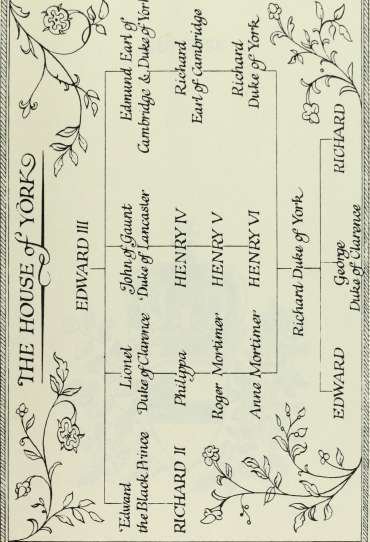 THE HOUSE of YORK
EDWARD III
Edward
the Black Prince
Lionel
Duke of Clarence
John of Gaunt
Duke of Lancaster
Edmund Earl of
Cambridge & Duke of York
RICHARD II
Philippa
HENRY IV
Richard
Earl of Cambridge
Roger Mortimer
HENRY V
Richard
Duke of York
Anne Mortimer
HENRY VI
Richard Duke of York
EDWARD
George
Duke of Clarence
RICHARD